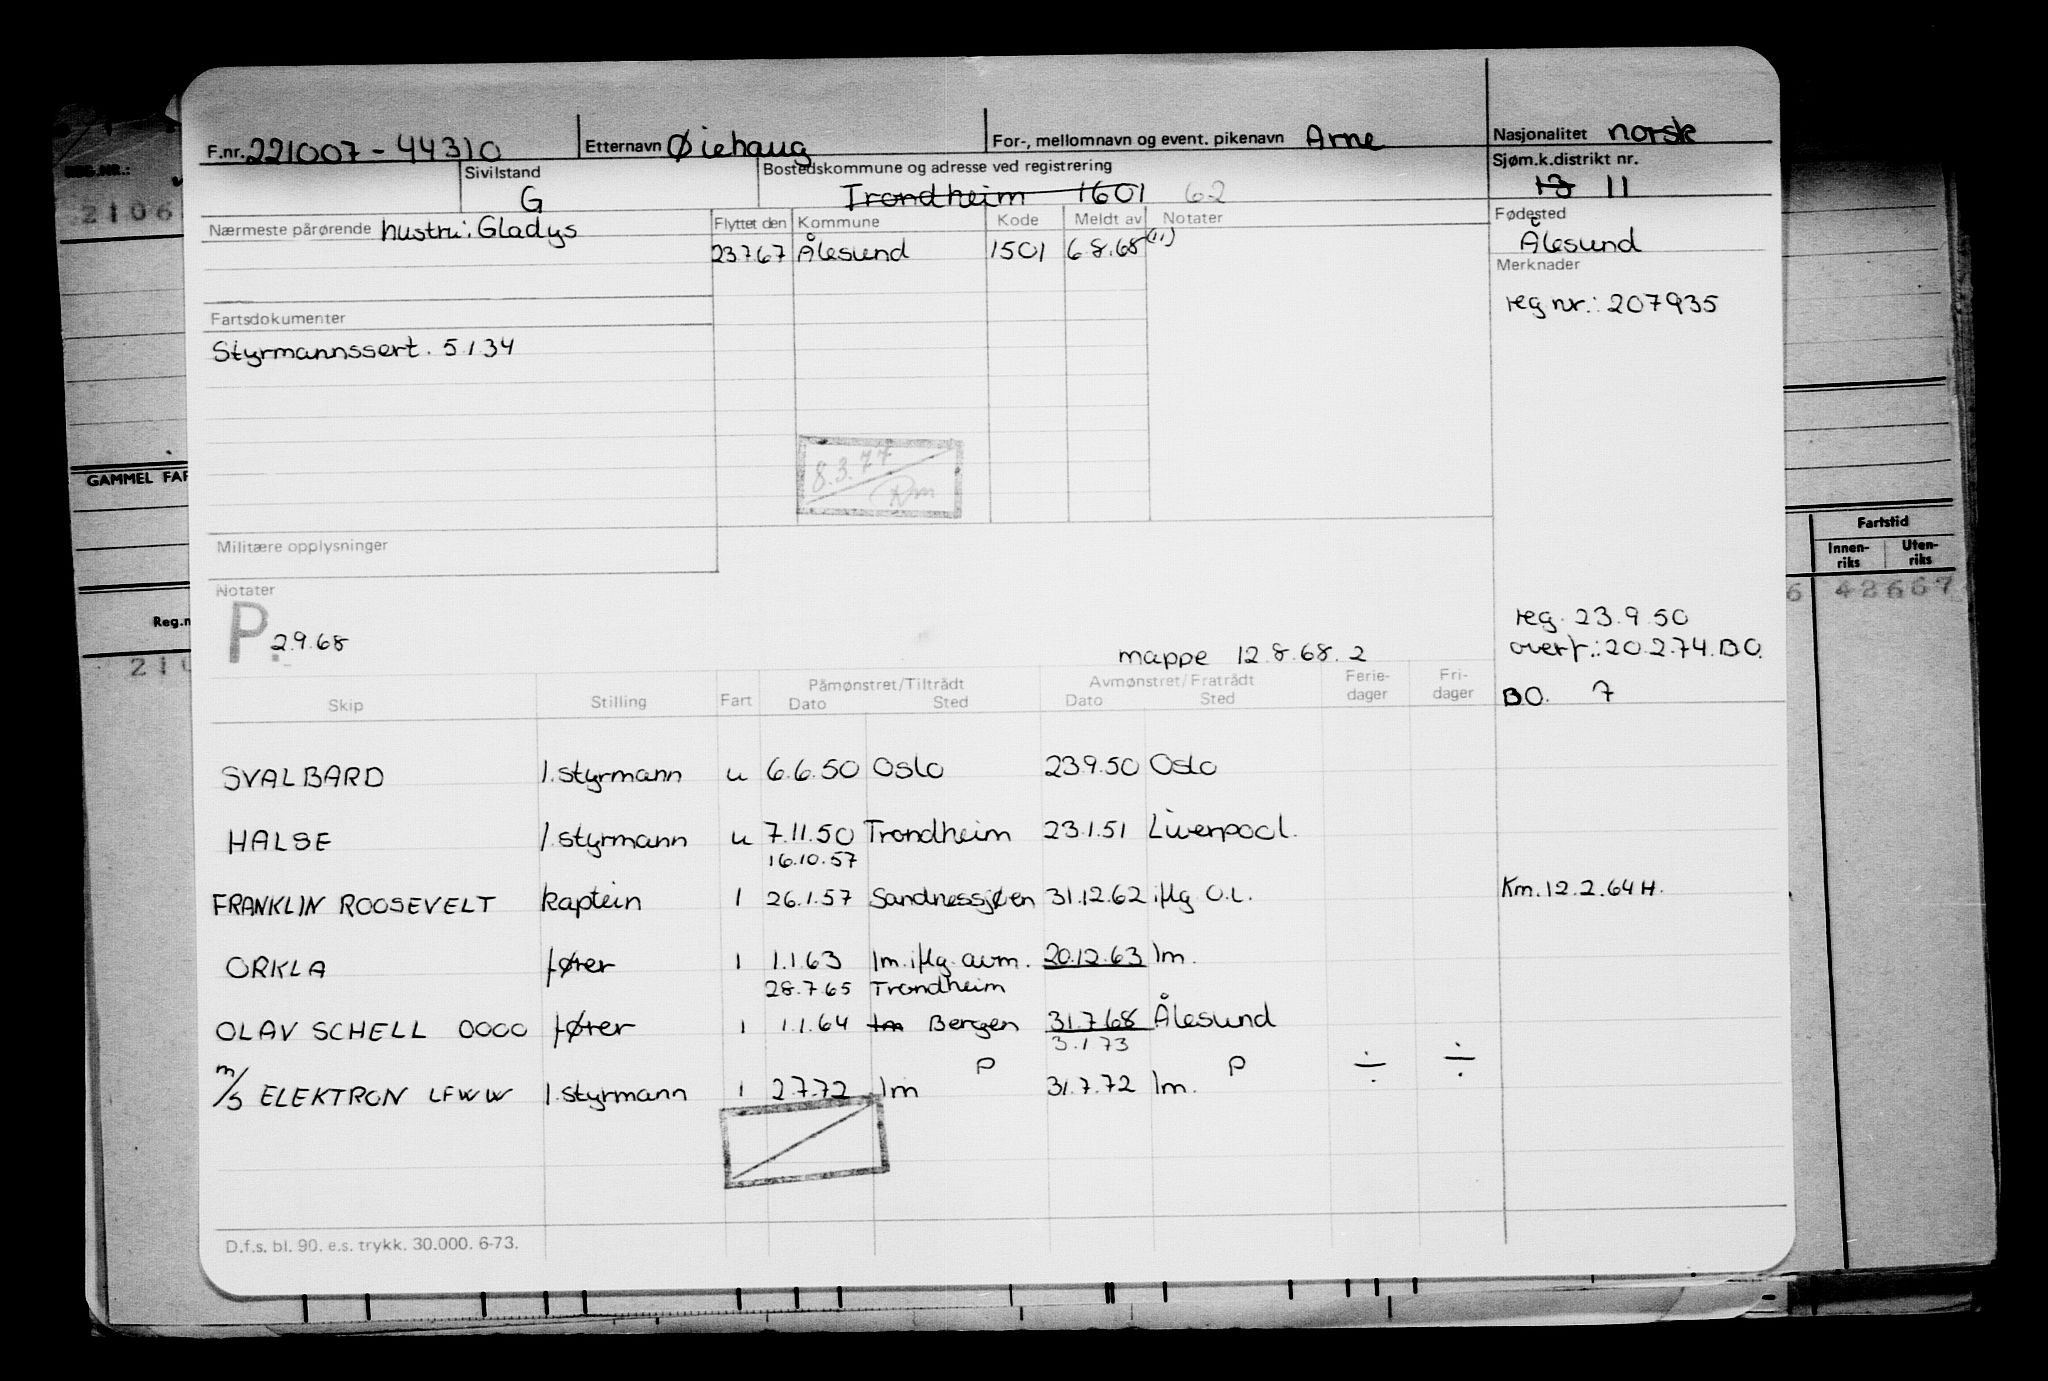 F.nr. 221007-44310 Etternavn Øiehaug For-, mellomnavn og event. pikenavn Arne Nasjonalitet norsk
Sivilstand G Bostedskommune og adresse ved registrering Trondheim 1601 62 Sjøm.k.distrikt nr. 13 11
Nærmeste pårørende hustru: Gladys Flyttet den Kommune Kode Meldt av Notater Fødested
23767 Ålesund 1501 6 8.68 (11) Ålesund
Merknader
reg nr.: 207935
Fartsdokumenter
Styrmannssert. 5.1 34
8.3.77
Militære opplysninger
Notater
P. 2.9.68
mappe 12.8.68.2
reg. 23.9.50
overf.: 20.2.74. B.O.
B.O. 7
Skip Stilling Fart Påmønstret/Tiltrådt Dato Sted Avmønstret/Fratrådt Dato Sted Ferie-dager Fri-dager
SVALBARD 1. styrmann u 6.6.50 Oslo 23.9.50 Oslo
HALSE 1. styrmann u 7.11.50 Trondheim 23.1.51 Liverpool.
16.10.57
FRANKLIN ROOSEVELT kaptein 1 26.1.57 Sandnessjøen 31.12.62 iflg. O.L. Km. 12.2.64 H.
ORKLA fører 1 1.1 63 Im. iflg. avm. 20.12.63 Im.
28.7.65 Trondheim
OLAV SCHELL OOOO fører 1 1.1.64 Im Bergen 31.7.68 Ålesund
3.1 73
P P ÷ ÷
m/s ELEKTRON LFWW 1. styrmann 1 2.7.72 Im 31.7.72 Im.
D.f.s. bl. 90. e.s. trykk. 30.000. 6-73.
REG.NR.:
2106
GAMMEL FAR
Reg.n
210
Fartstid
Innen-riks Uten-riks
6 42667